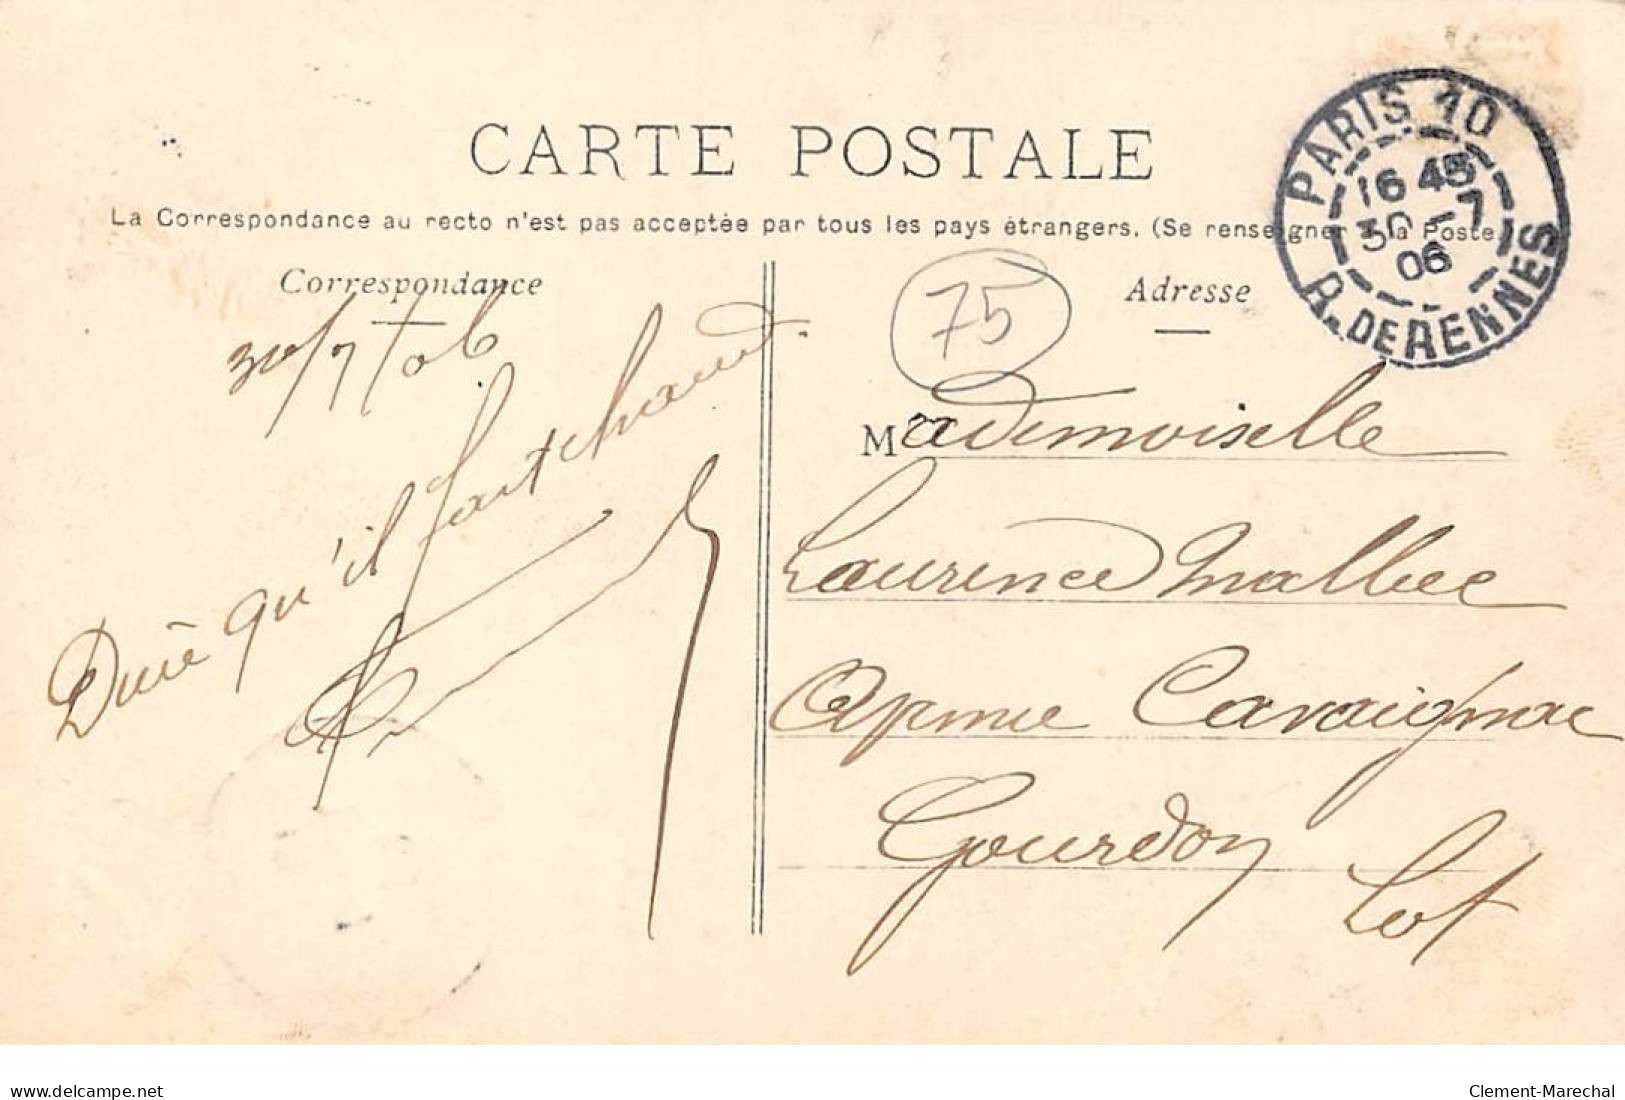 CARTE POSTALE
La Correspondance au recto n'est pas acceptée par tous les pays étrangers. (Se renseigner la Poste
PARIS 10
16 45
30 -7
06
R. DE RENNES
Correspondance
Adresse
75
30/7/06
qu'il fait chaud
Mademoiselle
Laurence Malbec
Cavaignac
Gourdon
Lot
www.delcampe.net
Clement-Marechal